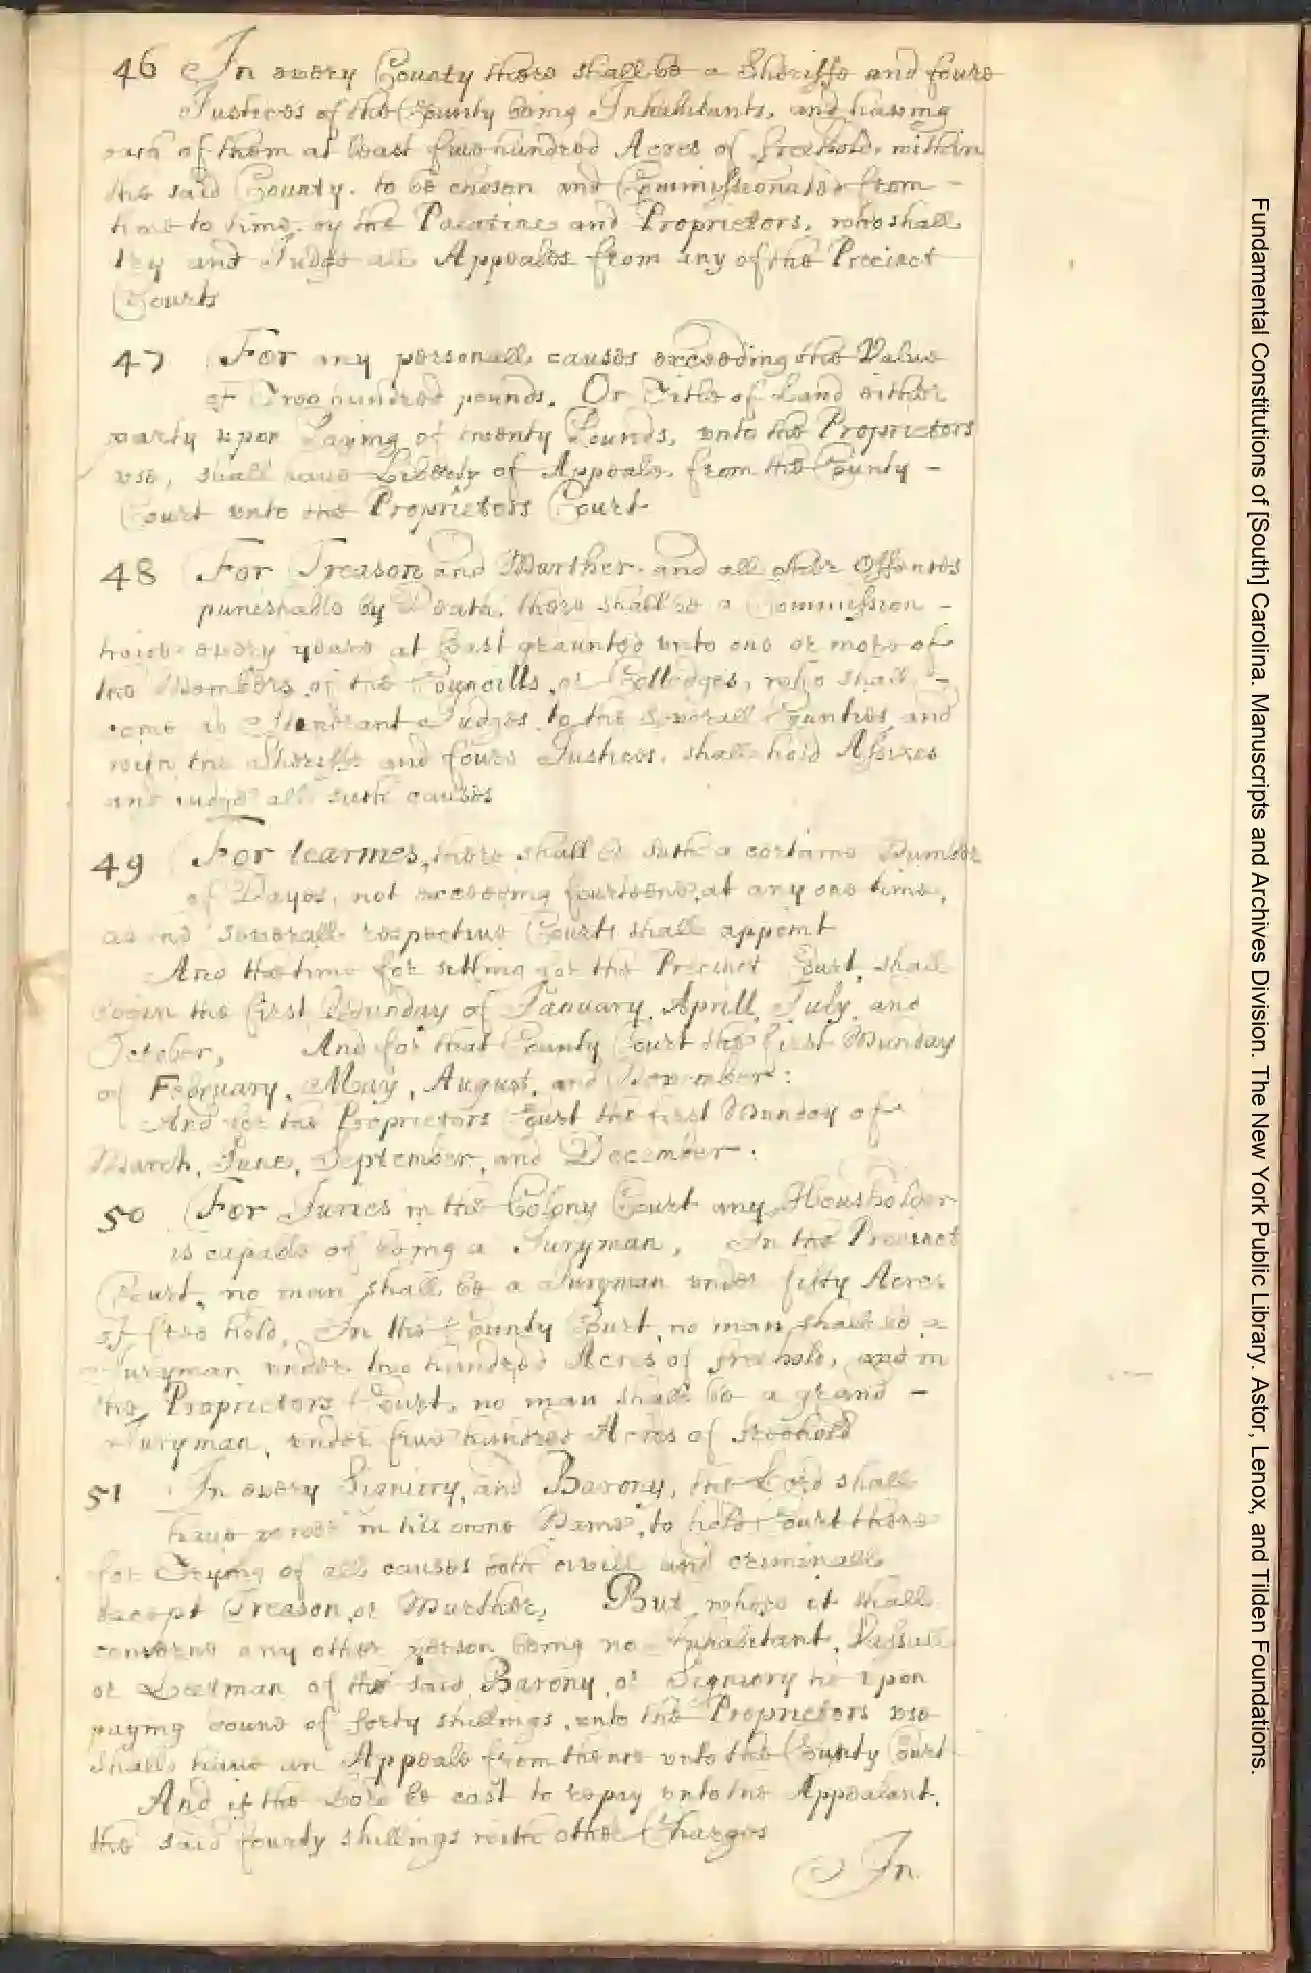 46 In every County there shall be a Sheriffe and foure
Justices of the County being Inhabitants, and having
each of them at least five hundred Acres of freehold, within
the said County. to be chosen and Commissionated from -
time to time, by the Palatine and Proprietors, who shall
try and Judge all Appeales from any of the Precinct
Courts
47 For any personall causes exceeding the Value
of Two hundred pounds, Or Title of Land either
party upon Paying of twenty Pounds, vnto the Proprietors
vse, shall have Liberty of Appeale, from the County -
Court vnto the Proprietors Court
48 For Treason and Murther. and all other Offences
punishable by Death, there shall be a Commission -
twice every yeare at least graunted vnto one or more of
the Members, of the Councills, or Colledges, who shall -
come as Itenerant Judges, to the severall Counties, and
with the Sheriffe and foure Justices, shall hold Assizes
and iudge all such causes
49 For tearmes, there shall be such a certaine Number
of Dayes, not exceeding fourteene, at any one time,
as the severall respective Courts shall appoint
And the time for sitting for the Precinct Court, shall
begin the first Munday of January, Aprill, July, and
October, And for that County Court the first Munday
of February, May, August, and November:
And for the Proprietors Court the first Munday of
March, June, September, and December.
50 For Juries in the Colony Court any Housholder
is capable of being a Juryman, In the Precinct
Court, no man shall be a Juryman vnder fifty Acres
of free hold, In the County Court, no man shall be a
Juryman vnder two hundred Acres of freehold, and in
the Proprietors Court, no man shall be a grand -
Juryman, vnder five hundred Acres of freehold
51 In every Signiory, and Barony, the Lord shall
have power in his owne Name, to hold Court there
for Trying of all causes both civill and criminall
except Treason, or Murther, But where it shall
concerne any other person being no Inhabitant, Vassall
or Leetman of the said Barony, or Signiory he vpon
paying downe of forty shillings, vnto the Proprietors vse
shall have an Appeale from thence vnto the County Court
And if the Lord be cast to repay vnto the Appealant,
the said fourty shillings with other Charges
In
Fundamental Constitutions of [South] Carolina. Manuscripts and Archives Division. The New York Public Library. Astor, Lenox, and Tilden Foundations.